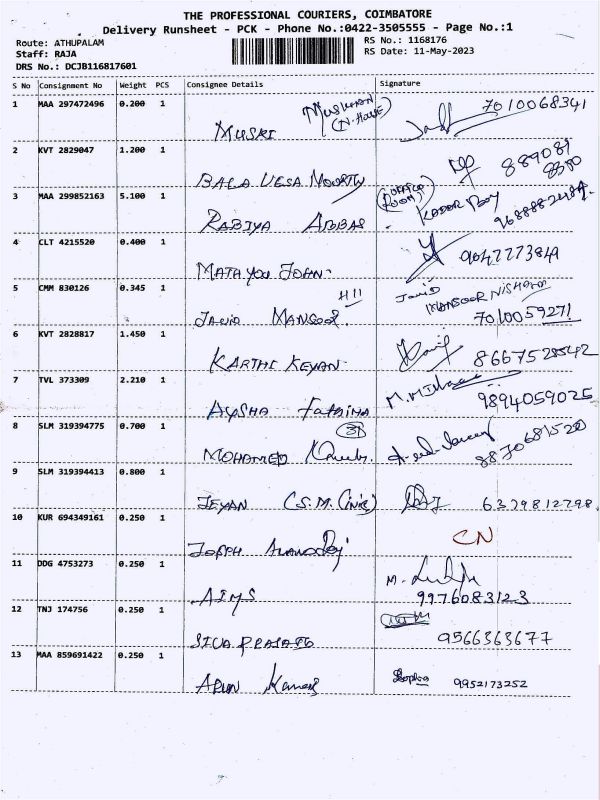 THE PROFESSIONAL COURIERS, COIMBATORE
Delivery Runsheet - PCK - Phone No.:0422-3505555 - Page No.:1
Route: ATHUPALAM
Staff: RAJA
DRS No.: DCJB116817601
RS No.: 1168176
RS Date: 11-May-2023
S No Consignment No Weight PCS Consignee Details Signature
1 MAA 297472496 0.200 1 MUSKI MUSKHAN (N-HOUSE) 7010068341
2 KVT 2829047 1.200 1 BALA VESA MOORTHY 889081 8380
3 MAA 299852163 5.100 1 RABIYA ABBAS KADER BOY
4 CLT 4215520 0.400 1 MATHAYOU JOHN 9047773849
5 CMM 830126 0.345 1 JAVID MANSOOR H11 JAVID MANSOOR NISHANA 7010059271
6 KVT 2828817 1.450 1 KARTHI KEYAN 8667528542
7 TVL 373309 2.210 1 AYSHA FATHIMA 9894059025
8 SLM 319394775 0.700 1 MOHAMED 31 8870681520
9 SLM 319394413 0.800 1 JEYAN (S.M. Clinic) 6379812798
10 KUR 694349161 0.250 1 CN
11 DDG 4753273 0.250 1 AIMS 9976083123
12 TNJ 174756 0.250 1 SIVA PRASATH 9566363677
13 MAA 859691422 0.250 1 ARUN Kumar Sopha 9952173252